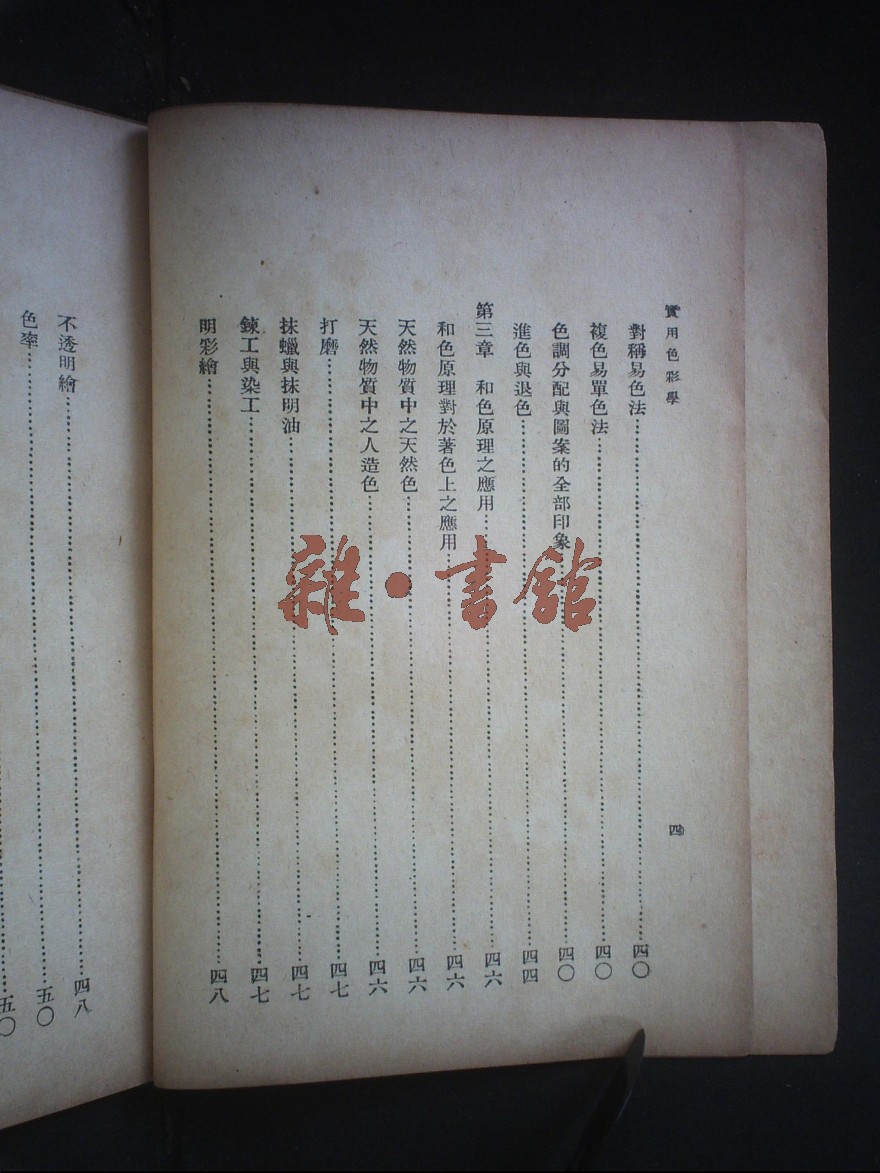 實用色彩學
四
對稱易色法……四〇
複色易單色法……四〇
色調分配與圖案的全部印象……四〇
進色與退色……四四
第三章 和色原理之應用……四六
和色原理對於著色上之應用……四六
天然物質中之天然色……四六
天然物質中之人造色……四六
打磨……四七
抹蠟與抹明油……四七
鍊工與染工……四七
明彩繪……四八
不透明繪……四八
色率……五〇
……五〇
雜·書館